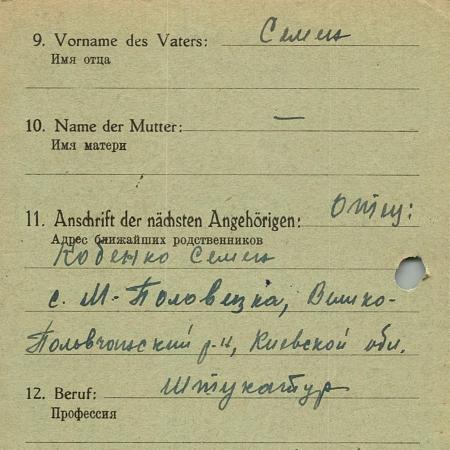 9. Vorname des Vaters: Семен
Имя отца
10. Name der Mutter: —
Имя матери
11. Anschrift der nächsten Angehörigen: Отец:
Адрес ближайших родственников
Кобенко Семен
с. М-Половецка, Велико-
Польвчанский р-н, Киевской обл.
12. Beruf: Штукатур
Профессия